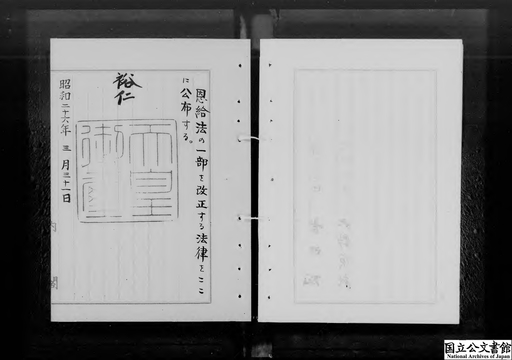 恩給法の一部を改正する法律をここ
に公布する。
裕仁
天皇御璽
昭和二十六年三月三十一日
内閣
国立公文書館
National Archives of Japan